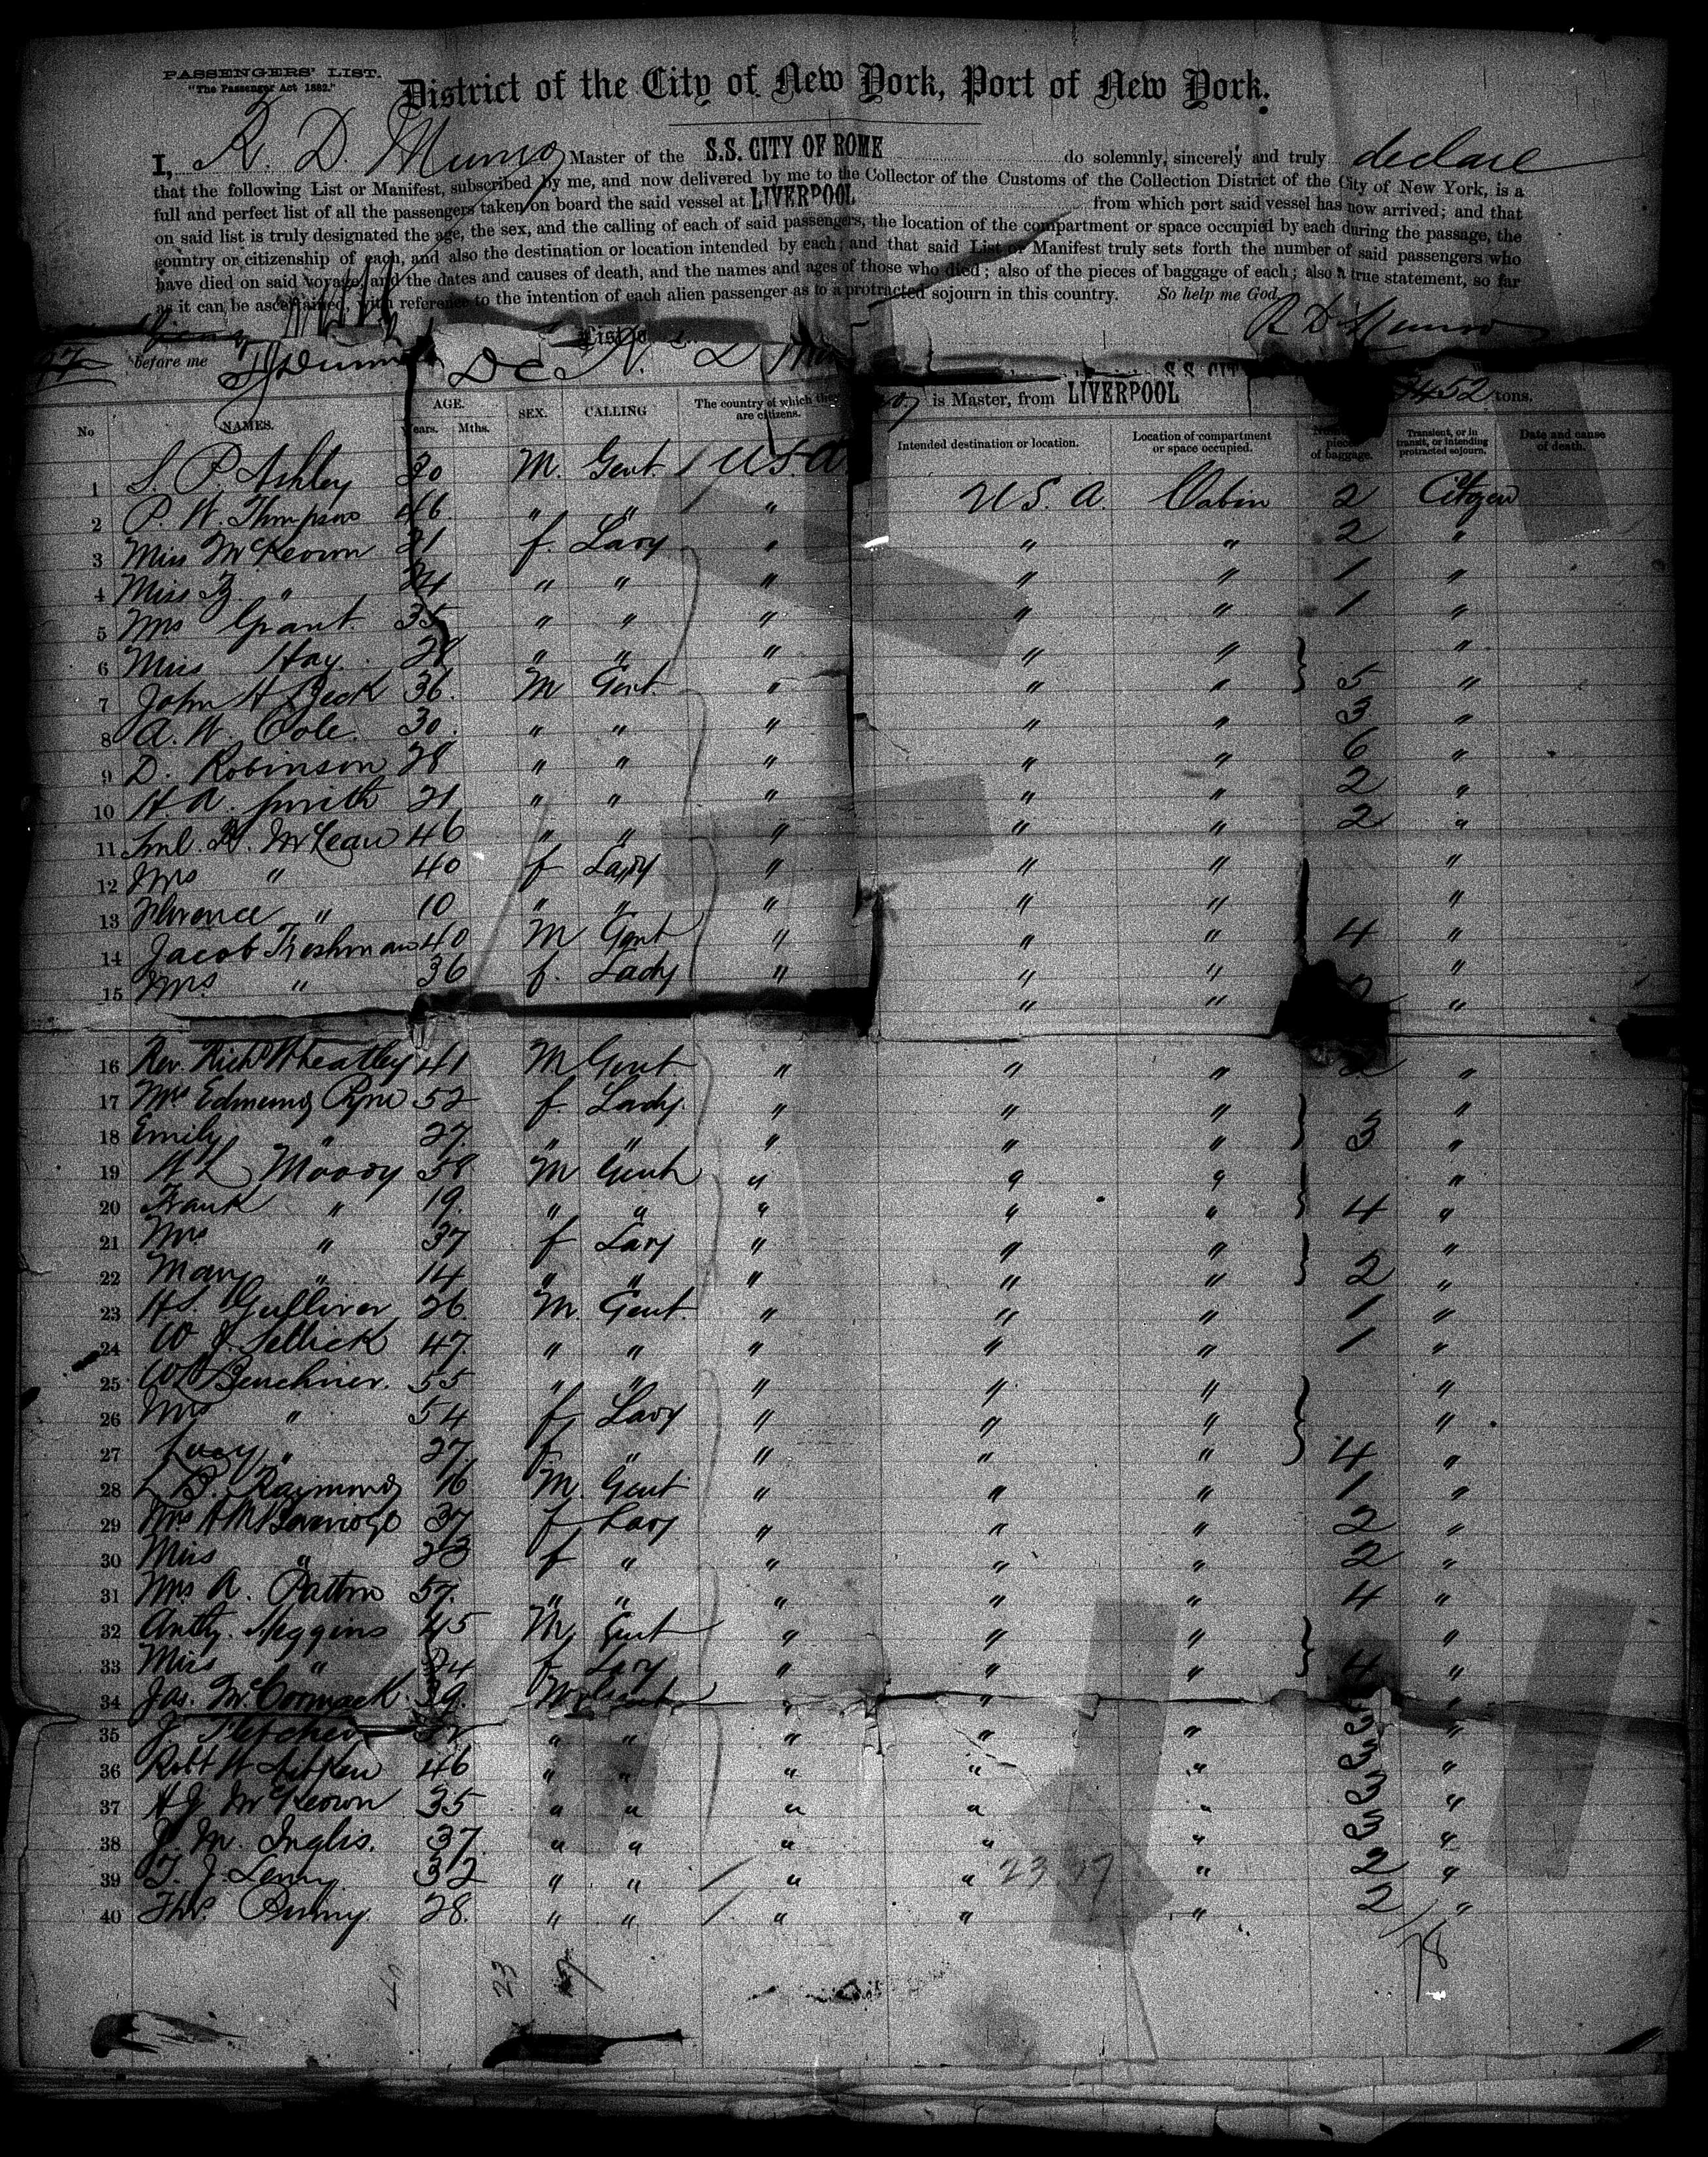 PASSENGERS' LIST.
"The Passenger Act 1882."
District of the City of New York, Port of New York.
I, R. D. Munro Master of the S.S. CITY OF ROME do solemnly, sincerely and truly declare
that the following List or Manifest, subscribed by me, and now delivered by me to the Collector of the Customs of the Collection District of the City of New York, is a
full and perfect list of all the passengers taken on board the said vessel at LIVERPOOL from which port said vessel has now arrived; and that
on said list is truly designated the age, the sex, and the calling of each of said passengers, the location of the compartment or space occupied by each during the passage, the
country or citizenship of each, and also the destination or location intended by each; and that said List or Manifest truly sets forth the number of said passengers who
have died on said voyage, and the dates and causes of death, and the names and ages of those who died; also of the pieces of baggage of each; also a true statement, so far
as it can be ascertained, with reference to the intention of each alien passenger as to a protracted sojourn in this country. So help me God
R D Munro
before me
is Master, from LIVERPOOL tons.
No NAMES. AGE. Years. Mths. SEX. CALLING The country of which they are citizens. Intended destination or location. Location of compartment or space occupied. pieces of baggage. Transient, or in transit, or intending protracted sojourn. Date and cause of death.
1 S. P. Ashley 30 M. Gent USA U.S.A. Cabin 2 Citizen
2 P. W. Thompson 46 " " " " " 2 "
3 Miss McKeown 21 f. Lady " " " 1 "
4 Miss " 24 " " " " " 1 "
5 Mrs Grant 35 " " " " " "
6 Miss Hay 28 " " " " " 5 "
7 John H Beck 36. M Gent " " " 3 "
8 A. W. Cole 30. " " " " " 6 "
9 D. Robinson 28 " " " " " 2 "
10 H. A. Smith 21 " " " " " 2 "
11 H. McLean 46 " " " " " "
12 Mrs " 40 f Lady " " " "
13 Florence " 10 " " " " " 4 "
14 Jacob Freshman 40 M Gent " " " "
15 Mrs " 36 f. Lady " " " "
16 Rev. Richd Wheatley 41 M Gent " " " 2 "
17 Mrs Edmund Pym 52 f. Lady. " " " "
18 Emily " 27. " " " " " 3 "
19 H L Moody 58 M Gent " " " "
20 Frank " 19. " " " " " 4 "
21 Mrs " 37 f Lady " " " "
22 Mary " 14 " " " " " 2 "
23 H.S. Gulliver 26. M. Gent. " " " 1 "
24 W J. Sellick 47. " " " " " 1 "
25 55 " " " " " "
26 Mrs " 54 f Lady " " " "
27 Lucy " 27 f " " " " 4 "
28 L B. Raymond 16 M. Gent " " " 1 "
29 Mrs 37 f Lady " " " 2 "
30 Miss " 23 f " " " " 2 "
31 Mrs A. Patton 57. " " " " " 4 "
32 Anthy. Heggins 45 M Gent " " " "
33 Miss " 24 f Lady " " " 4 "
34 Jas. McCormack 39. M Gent " " "
35 J Fletcher " " " " " "
36 Robt W Aitken 46 " " " " " "
37 H J McKeown 35 " " " " " "
38 J M. Inglis. 37. " " " " " "
39 T. J. Lenny 32 " " " " " 2 "
40 28. " " " " " 2 "
23 37
78
23